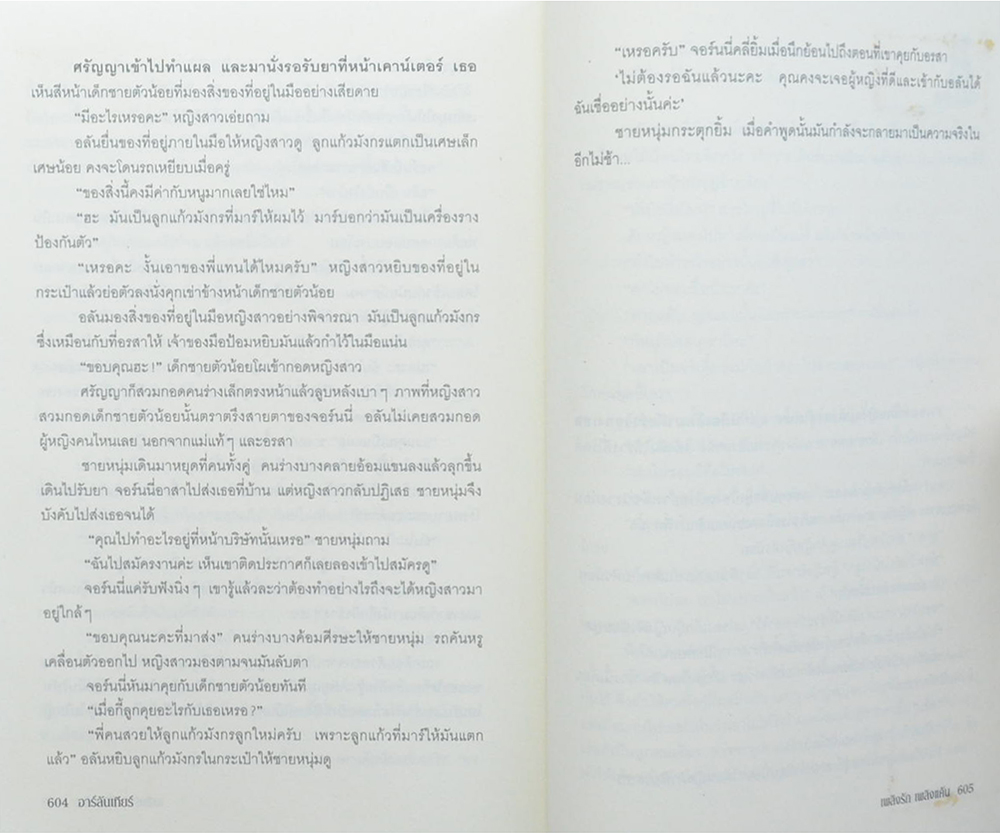 ศรัญญาเข้าไปทำแผล และมานั่งรอรับยาที่หน้าเคาน์เตอร์ เธอ
เห็นสีหน้าเด็กชายตัวน้อยที่มองสิ่งของที่อยู่ในมืออย่างเสียดาย
“มีอะไรเหรอคะ” หญิงสาวเอ่ยถาม
อลันยื่นของที่อยู่ภายในมือให้หญิงสาวดู ลูกแก้วมังกรแตกเป็นเศษเล็ก
เศษน้อย คงจะโดนรถเหยียบเมื่อครู่
“ของสิ่งนี้คงมีค่ากับหนูมากเลยใช่ไหม”
“ฮะ มันเป็นลูกแก้วมังกรที่มาร์ให้ผมไว้ มาร์บอกว่ามันเป็นเครื่องราง
ป้องกันตัว”
“เหรอคะ งั้นเอาของพี่แทนได้ไหมครับ” หญิงสาวหยิบของที่อยู่ใน
กระเป๋าแล้วย่อตัวลงนั่งคุกเข่าข้างหน้าเด็กชายตัวน้อย
อลันมองสิ่งของที่อยู่ในมือหญิงสาวอย่างพิจารณา มันเป็นลูกแก้วมังกร
ซึ่งเหมือนกับที่อรสาให้ เจ้าของมือป้อมหยิบมันแล้วกำไว้ในมือแน่น
“ขอบคุณฮะ!” เด็กชายตัวน้อยโผเข้ากอดหญิงสาว
ศรัญญาก็สวมกอดคนร่างเล็กตรงหน้าแล้วลูบหลังเบาๆ ภาพที่หญิงสาว
สวมกอดเด็กชายตัวน้อยนั้นตราตรึงสายตาของจอร์นนี่ อลันไม่เคยสวมกอด
ผู้หญิงคนไหนเลย นอกจากแม่แท้ๆ และอรสา
ชายหนุ่มเดินมาหยุดที่คนทั้งคู่ คนร่างบางคลายอ้อมแขนลงแล้วลุกขึ้น
เดินไปรับยา จอร์นนี่อาสาไปส่งเธอที่บ้าน แต่หญิงสาวกลับปฏิเสธ ชายหนุ่มจึง
บังคับไปส่งเธอจนได้
“คุณไปทำอะไรอยู่ที่หน้าบริษัทนั้นเหรอ” ชายหนุ่มถาม
“ฉันไปสมัครงานค่ะ เห็นเขาติดประกาศก็เลยลองเข้าไปสมัครดู”
จอร์นนี่แค่รับฟังนิ่งๆ เขารู้แล้วละว่าต้องทำอย่างไรถึงจะได้หญิงสาวมา
อยู่ใกล้ๆ
“ขอบคุณนะคะที่มาส่ง” คนร่างบางค้อมศีรษะให้ชายหนุ่ม รถคันหรู
เคลื่อนตัวออกไป หญิงสาวมองตามจนมันลับตา
จอร์นนี่หันมาคุยกับเด็กชายตัวน้อยทันที
“เมื่อกี้ลูกคุยอะไรกับเธอเหรอ?”
“พี่คนสวยให้ลูกแก้วมังกรลูกใหม่ครับ เพราะลูกแก้วที่มาร์ให้มันแตก
แล้ว” อลันหยิบลูกแก้วมังกรในกระเป๋าให้ชายหนุ่มดู
604 อาร์ลันเทียร์
“เหรอครับ” จอร์นนี่คลี่ยิ้มเมื่อนึกย้อนไปถึงตอนที่เขาคุยกับอรสา
‘ไม่ต้องรอฉันแล้วนะคะ คุณคงจะเจอผู้หญิงที่ดีและเข้ากับอลันได้
ฉันเชื่ออย่างนั้นค่ะ’
ชายหนุ่มกระตุกยิ้ม เมื่อคำพูดนั้นมันกำลังจะกลายมาเป็นความจริงใน
อีกไม่ช้า...
เพลิงรัก เพลิงแค้น 605